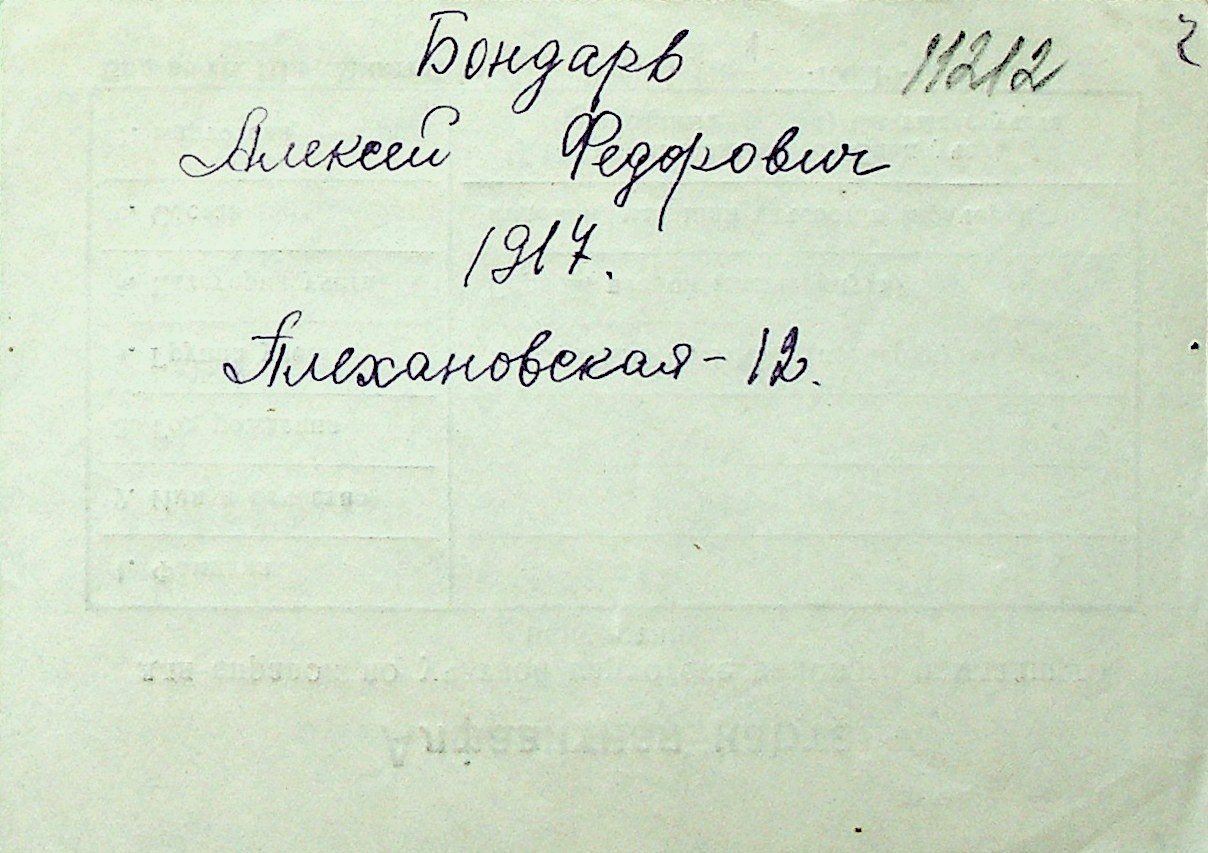 Бондарв 11212
Алексей Федорович
1917.
Плехановская - 12.